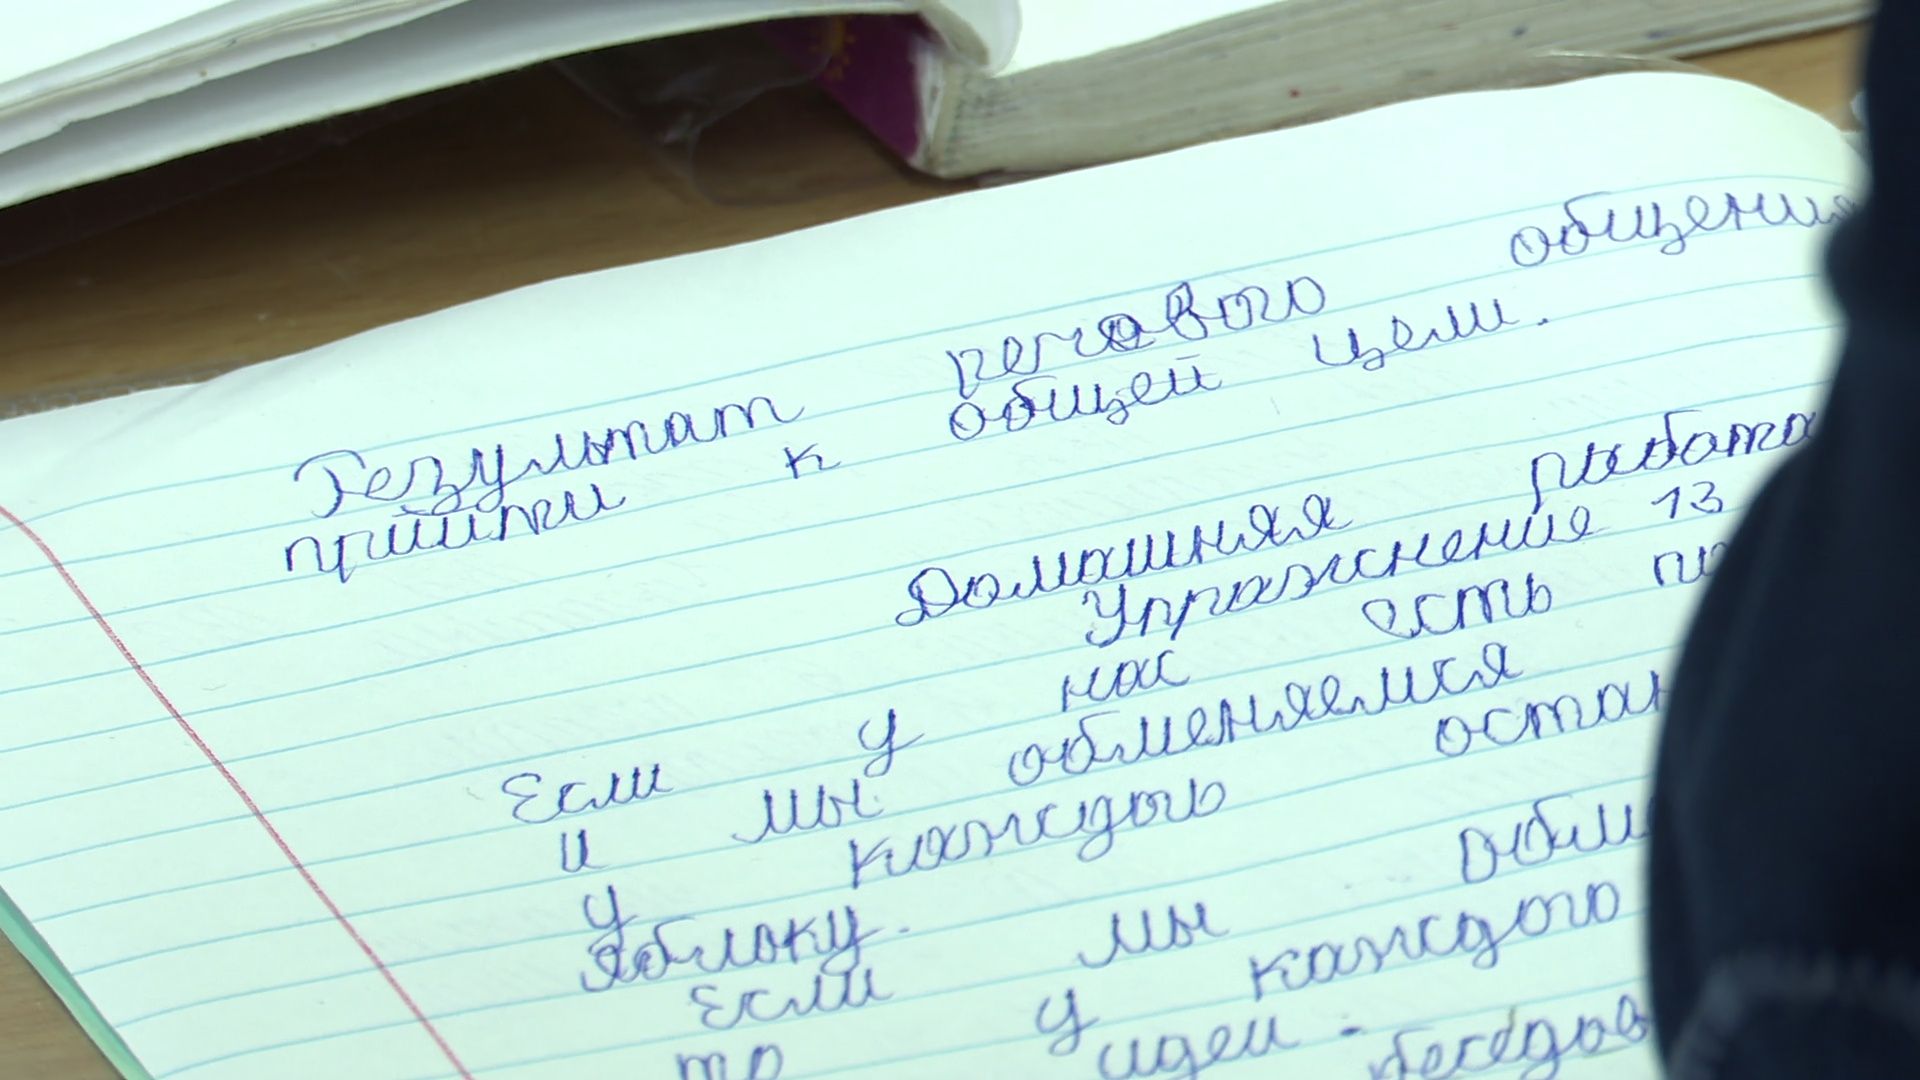 Результат речевого общения
прийти к общей цели.
Домашняя рыбота
Упражнение 13
Если у нас есть
и мы обменяемся
у каждого
яблоку.
Если мы
то у каждого
идеи.